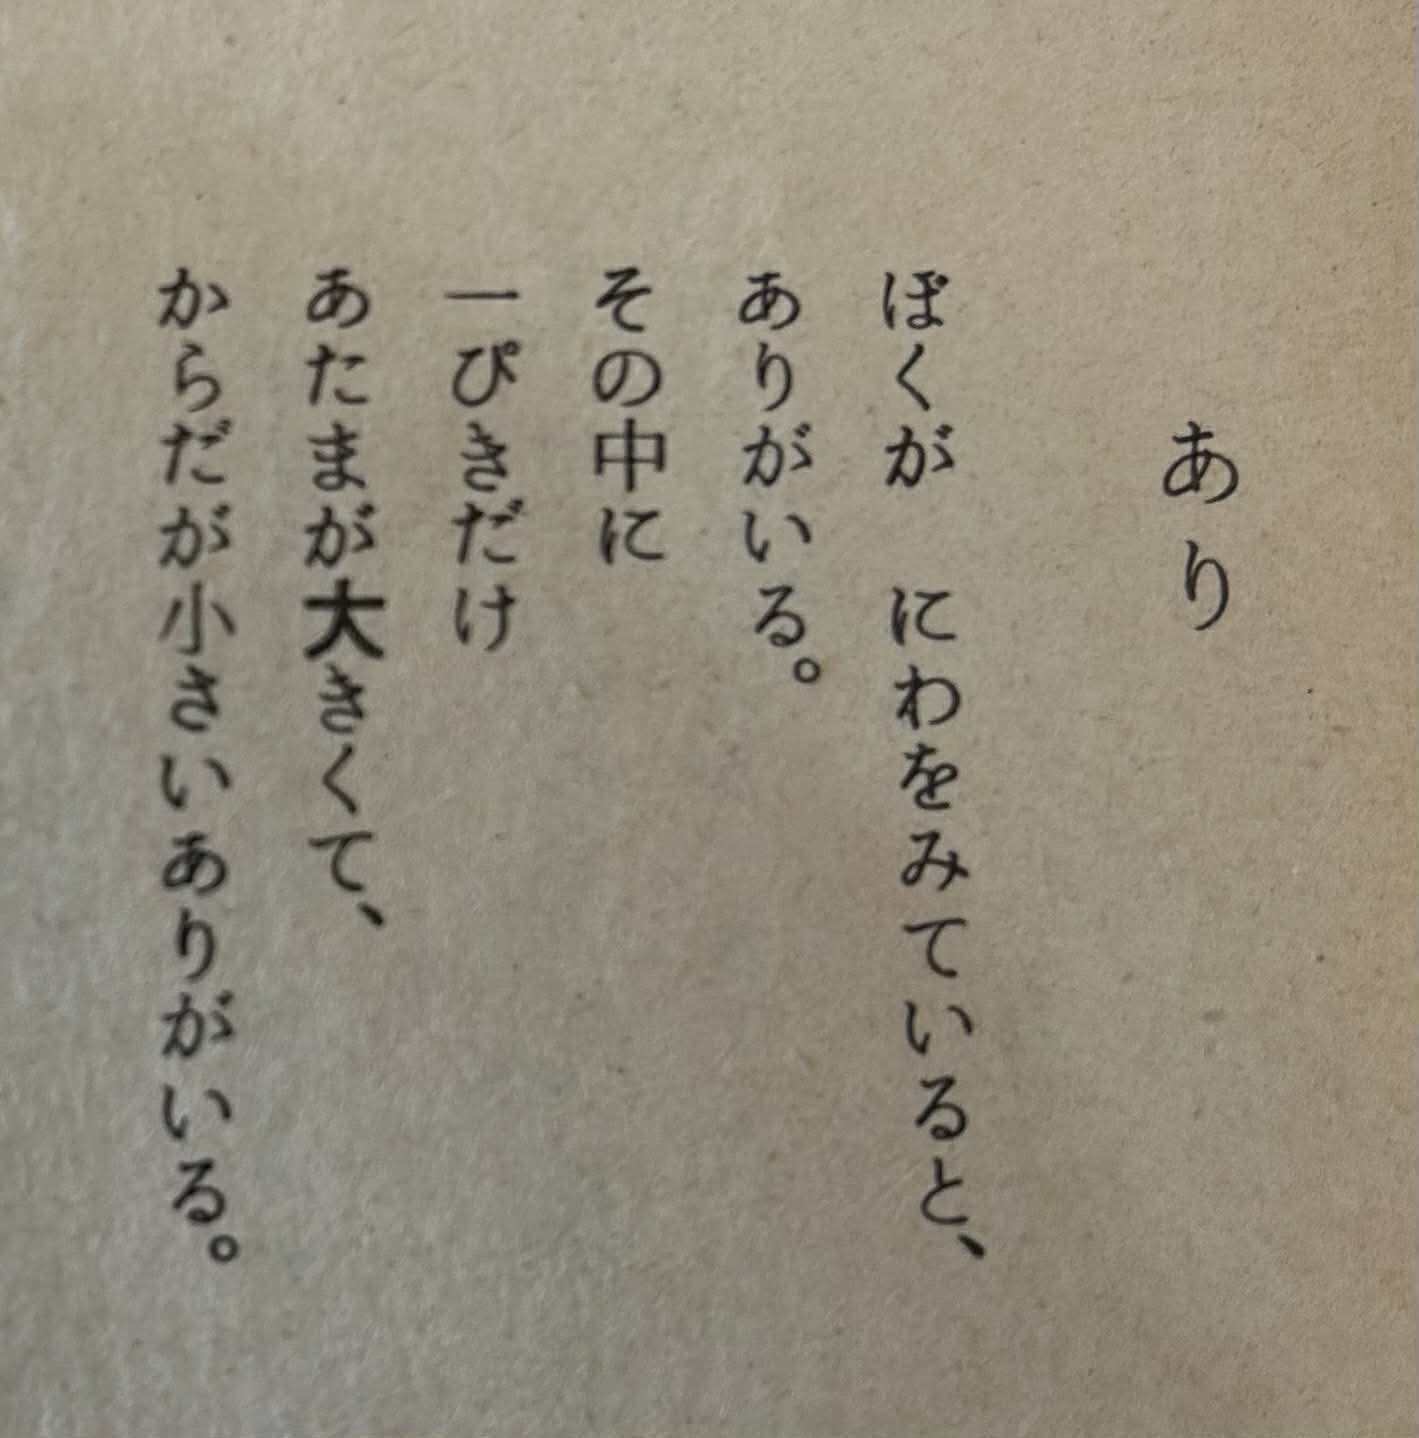 あり
ぼくが　にわをみていると、
ありがいる。
その中に
一ぴきだけ
あたまが大きくて、
からだが小さいありがいる。